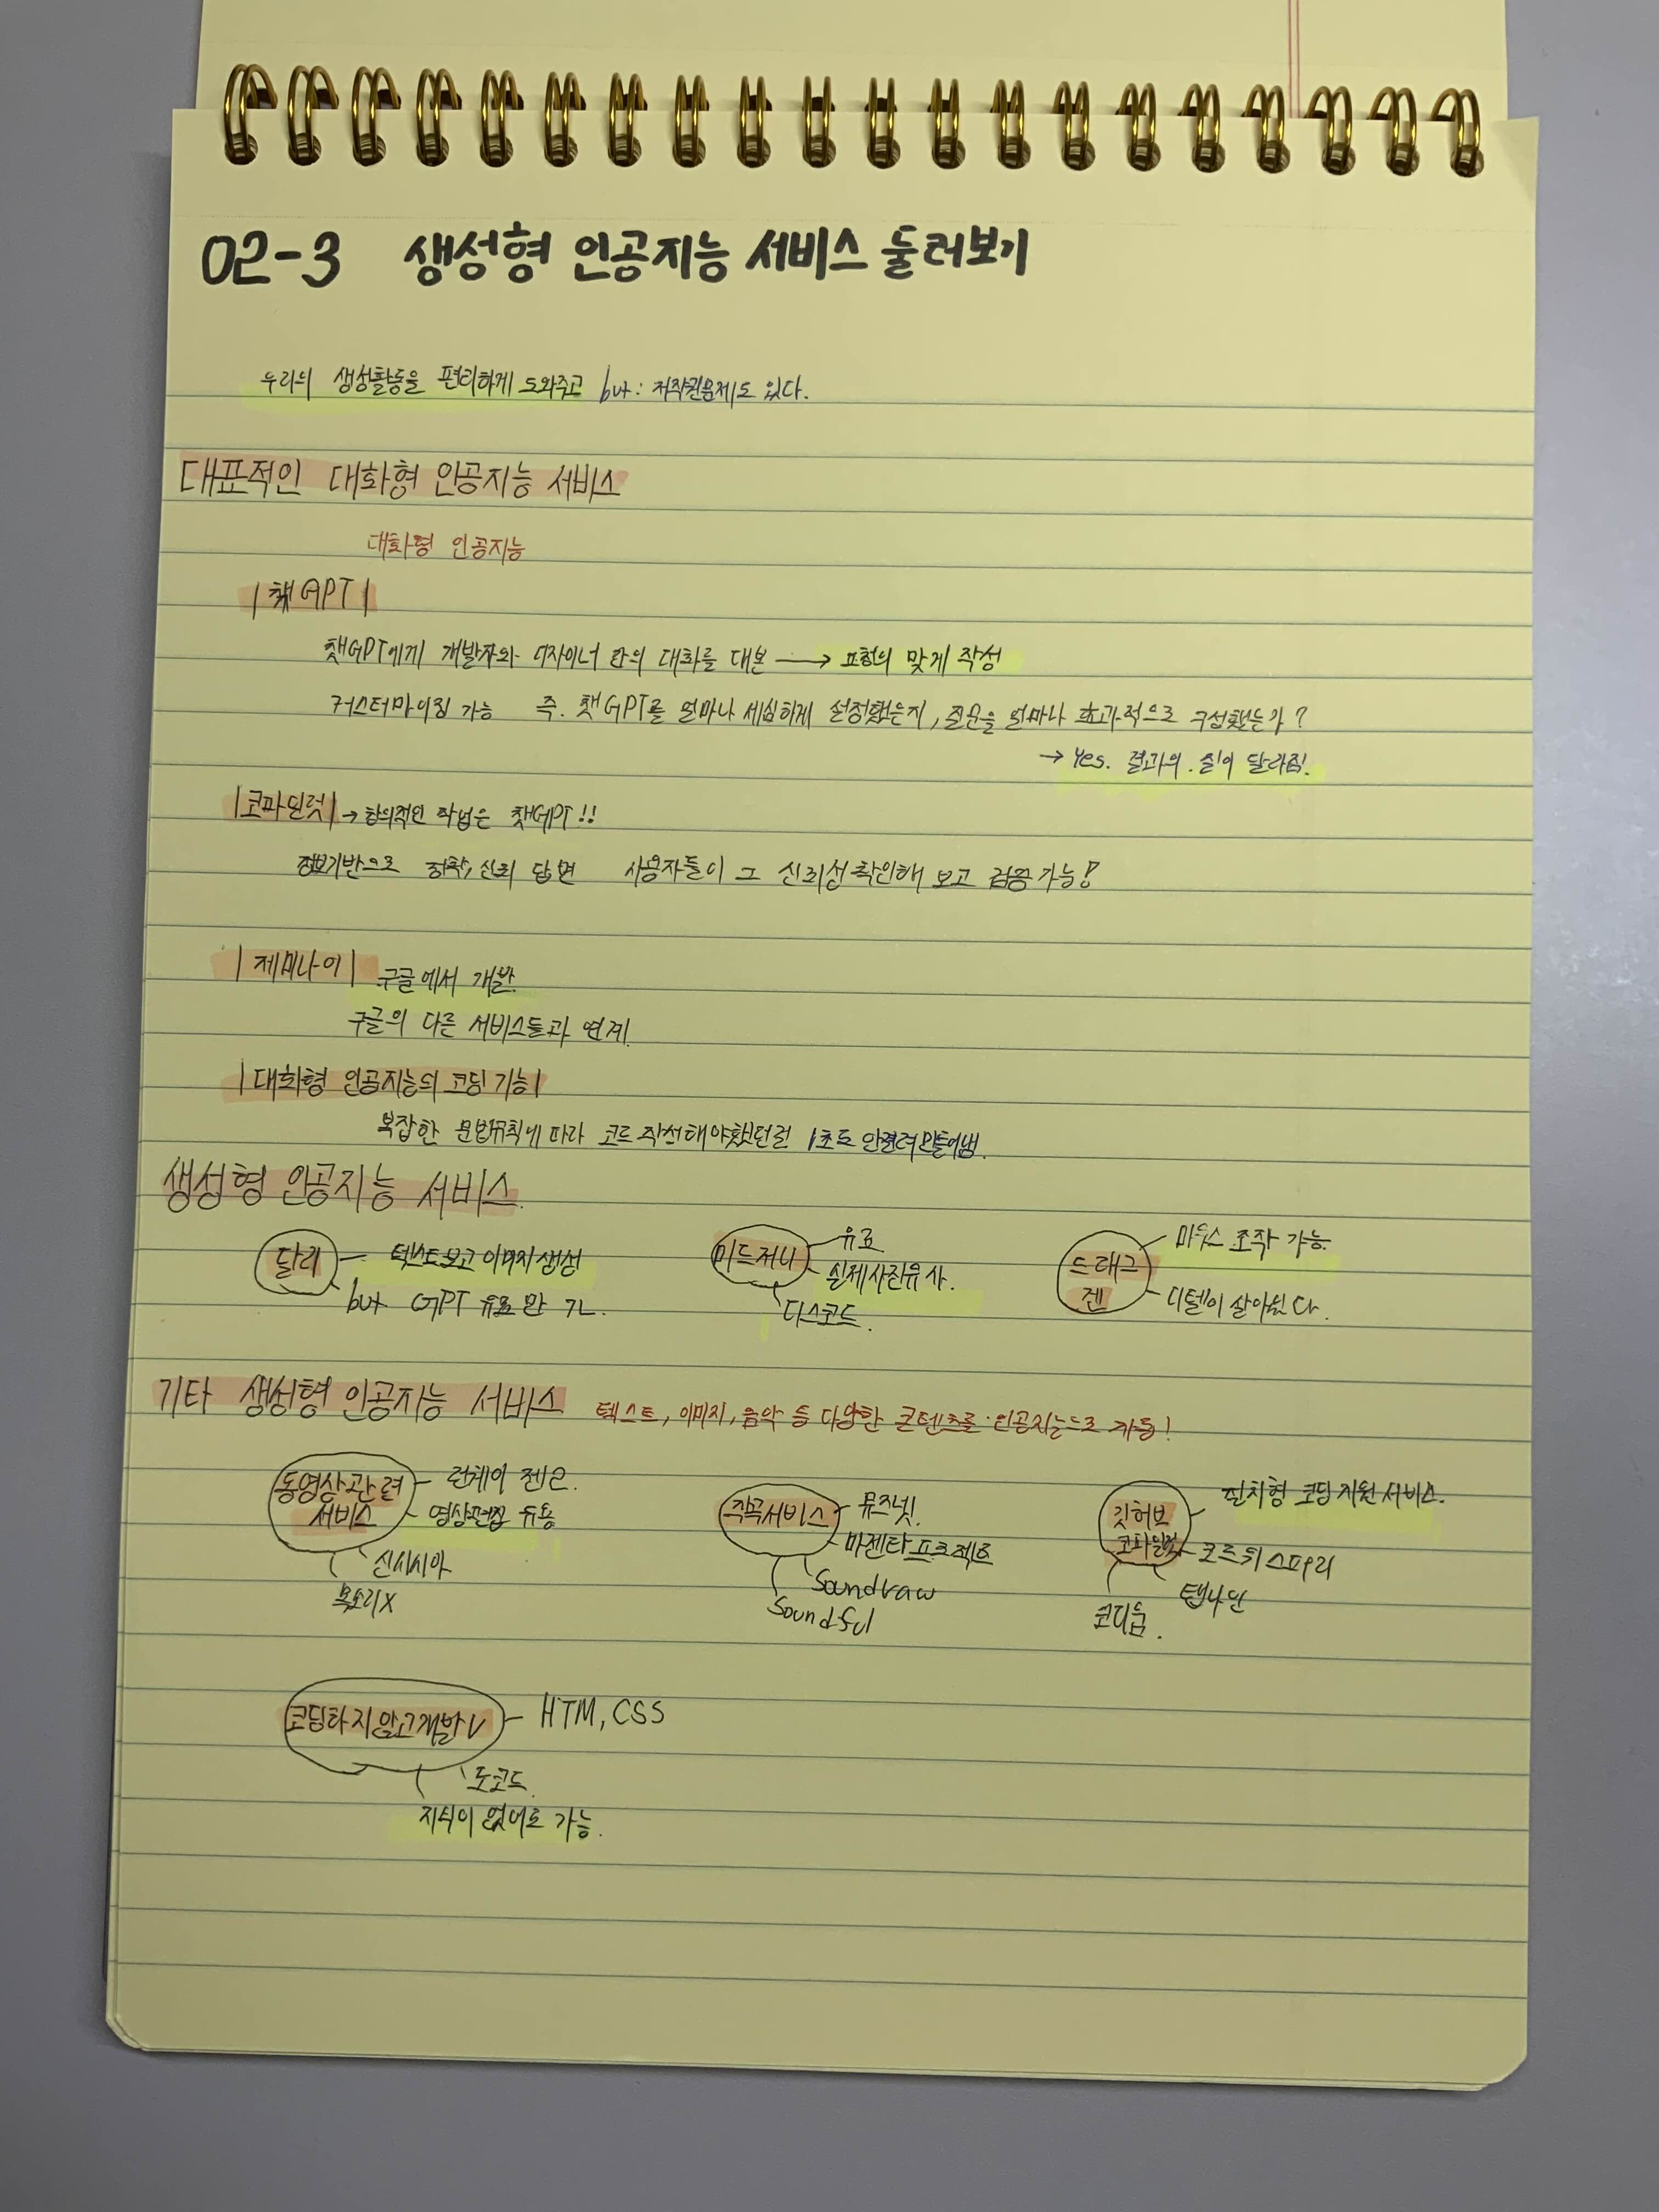 02-3 생성형 인공지능 서비스 둘러보기
우리의 생성활동을 편리하게 도와주고 but: 저작권문제도 있다.
대표적인 대화형 인공지능 서비스
대화형 인공지능
|챗GPT|
챗GPT에게 개발자와 디자이너 간의 대화를 대본 → 표현의 맞게 작성
커스터마이징 가능 즉. 챗GPT를 얼마나 세심하게 설정했는지, 질문을 얼마나 효과적으로 구성했는가?
→ Yes. 결과의 질이 달라짐!
|코파일럿| → 창의적인 작업은 챗GPT!!
정보기반으로 정확, 신뢰 답변 사용자들이 그 신뢰성 확인해 보고 검증가능!
|제미나이| 구글에서 개발
구글의 다른 서비스들과 연계
|대화형 인공지능의 코딩 기능|
복잡한 문법규칙에 따라 코드 작성해야했던걸 1초도 안걸려만들어냄.
생성형 인공지능 서비스
달리
텍스트보고 이미지생성
but GPT 유료만 가능.
미드저니
유료
실제사진유사.
디스코드.
드래그
젠
마우스 조작 가능
디텔이 살아있다.
기타 생성형 인공지능 서비스 텍스트, 이미지, 음악 등 다양한 콘텐츠를 인공지능으로 가능!
동영상관련
서비스
런웨이 젠2.
영상편집 유용
신시시아
목소리X
작곡서비스
뮤즈넷!
마젠타프로젝트
Soundraw
Soundful
깃허브
코파일럿
코드위스퍼러
탭나인
코디움.
코딩하지않고개발V
HTM, CSS
노코드.
지식이 없어도 가능.